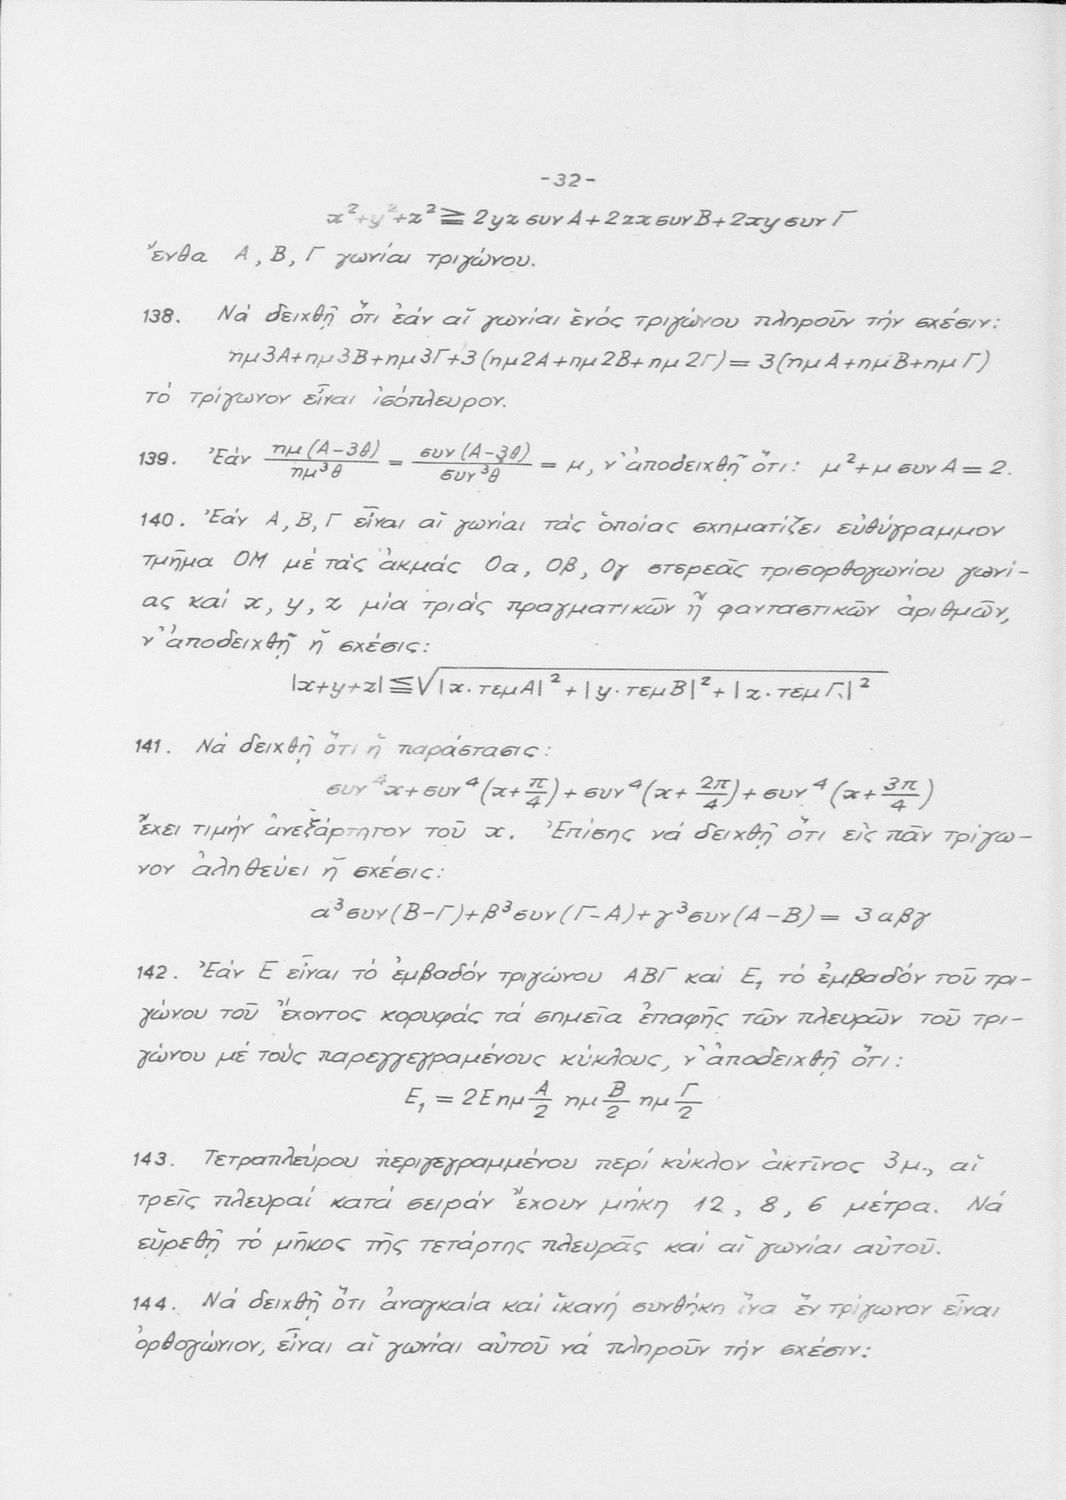 -32-
x²+y²+z² ≧ 2yz συν A + 2zx συν B + 2xy συν Γ
ἔνθα A, B, Γ γωνίαι τριγώνου.
138. Νά δειχθῇ ὅτι ἐάν αἱ γωνίαι ἑνός τριγώνου πληροῦν τήν σχέσιν:
ημ3A+ημ3B+ημ3Γ+3(ημ2A+ημ2B+ημ2Γ) = 3(ημA+ημB+ημΓ)
τό τρίγωνον εἶναι ἰσόπλευρον.
139. Ἐάν ημ(A-3θ)/ημ³θ = συν(A-3θ)/συν³θ = μ, ν'ἀποδειχθῇ ὅτι: μ²+μ συν A = 2.
140. Ἐάν A, B, Γ εἶναι αἱ γωνίαι τάς ὁποίας σχηματίζει εὐθύγραμμον
τμῆμα OM μέ τάς ἀκμάς Oα, Oβ, Oγ στερεᾶς τρισορθογωνίου γωνί-
ας καί x, y, z μία τριάς πραγματικῶν ἤ φανταστικῶν ἀριθμῶν,
ν'ἀποδειχθῇ ἡ σχέσις:
|x+y+z| ≦ √|x·τεμA|²+|y·τεμB|²+|z·τεμΓ|²
141. Νά δειχθῇ ὅτι ἡ παράστασις:
συν⁴x+συν⁴(x+π/4)+συν⁴(x+2π/4)+συν⁴(x+3π/4)
ἔχει τιμήν ἀνεξάρτητον τοῦ x. Ἐπίσης νά δειχθῇ ὅτι εἰς πᾶν τρίγω-
νον ἀληθεύει ἡ σχέσις:
α³συν(B-Γ)+β³συν(Γ-A)+γ³συν(A-B) = 3αβγ
142. Ἐάν E εἶναι τό ἐμβαδόν τριγώνου ABΓ καί E₁ τό ἐμβαδόν τοῦ τρι-
γώνου τοῦ ἔχοντος κορυφάς τά σημεῖα ἐπαφῆς τῶν πλευρῶν τοῦ τρι-
γώνου μέ τούς παρεγγεγραμένους κύκλους, ν'ἀποδειχθῇ ὅτι:
E₁ = 2E ημ A/2 ημ B/2 ημ Γ/2
143. Τετραπλεύρου περιγεγραμμένου περί κύκλον ἀκτῖνος 3μ., αἱ
τρεῖς πλευραί κατά σειράν ἔχουν μήκη 12, 8, 6 μέτρα. Νά
εὑρεθῇ τό μῆκος τῆς τετάρτης πλευρᾶς καί αἱ γωνίαι αὐτοῦ.
144. Νά δειχθῇ ὅτι ἀναγκαία καί ἱκανή συνθήκη ἵνα ἕν τρίγωνον εἶναι
ὀρθογώνιον, εἶναι αἱ γωνίαι αὐτοῦ νά πληροῦν τήν σχέσιν: